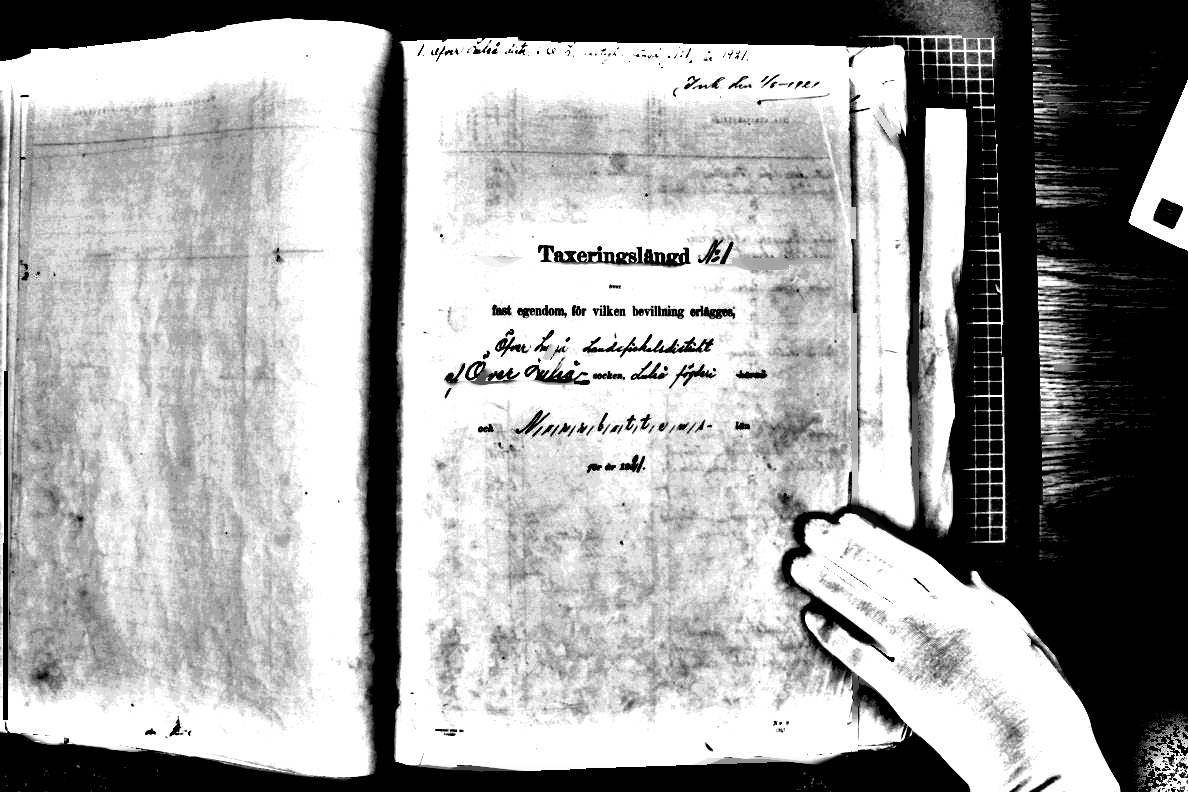 1. Öfver Luleå distr. år 1921.
Ink. den 1/8-1921
Taxeringslängd № 1
över
fast egendom, för vilken bevillning erlägges,
Öfver Luleå Landsfiskalsdistrikt
af Över Luleå socken, Luleå fögderi härad
och Norrbottens län
för år 1921.
No 9